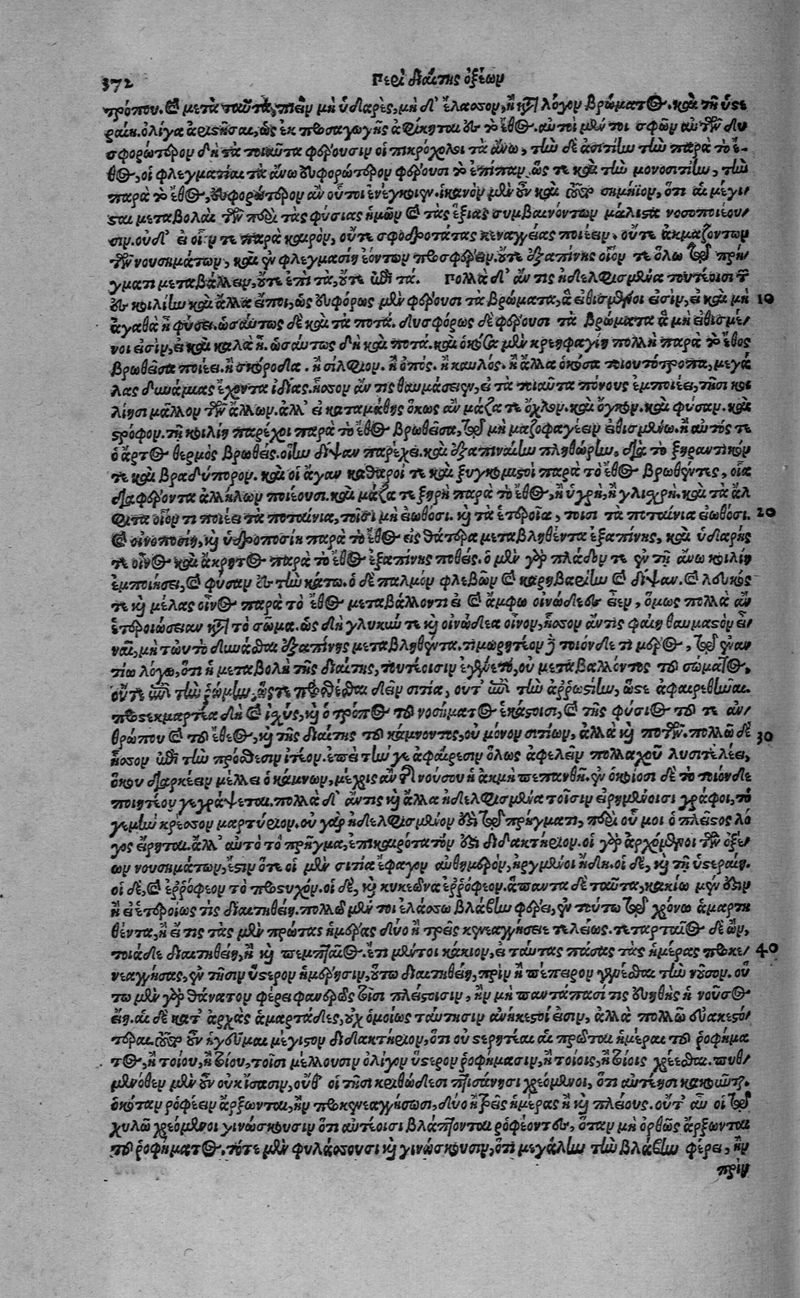 372 Περὶ διαίτης ὀξέων
τρόπου. καὶ μετὰ ταῦτα πιεῖν μὴ ὑδαρὲς, μὴ δ' ἔλασσον, ἢ κατὰ λόγον βρώματος. καὶ τῇ ὑστε
ραίῃ. ὀλίγα ἀριστῆσαι, ὡς ἐκ προσαγωγῆς ἀφίκηται ἐς τὸ ἔθος. αὐτοὶ μέν τοι σφῶν αὐτῶν δυ
σφορώτερον δὴ τὰ τοιαῦτα φέρουσιν οἱ πικρόχολοι τὰ ἄνω, τὴν δὲ ἀσιτίην τὴν παρὰ τὸ ἔ-
θος, οἱ φλεγματίαι τὰ ἄνω εὐφορώτερον φέρουσι τὸ ἐπίπαν. ὥς τε καὶ τὴν μονοσιτίην, τὴν
παρὰ τὸ ἔθος, εὐφορώτερον ἂν οὗτοι ἐνέγκοιεν. ἱκανὸν μὲν οὖν καὶ τοῦτο σημήϊον, ὅτι αἱ μέγι-
σται μεταβολαὶ τῶν περὶ τὰς φύσιας ἡμῶν καὶ τὰς ἕξιας συμβαινόντων μάλιστα νοσοποιέου-
σιν. οὐ δ' εἰ οἷόν τε παρὰ καιρὸν, οὔτε σφοδροτάτας κενεαγγείας ποιέειν, οὔτε ἀκμαζόντων
τῶν νουσημάτων, καὶ ἐν φλεγμασίῃ ἐόντων προσφέρειν. οὔτε ἐξαπίνης οἷόν τε ὅλῳ τῷ πρή-
γματι μεταβάλλειν, οὔτε ἐπὶ τὰ, οὔτε ἐπὶ τά. Πολλὰ δ' ἄν τις ἠδελφισμένα τουτέοισι τῶν
ἐς κοιλίην καὶ ἄλλα εἴποι, ὡς εὐφόρως μὲν φέρουσι τὰ βρώματα, ἃ εἰθισμένοι εἰσὶν, εἰ καὶ μὴ 10
ἀγαθὰ ᾖ φύσει. ὡσαύτως δὲ καὶ τὰ ποτά. δυσφόρως δὲ φέρουσι τὰ βρώματα ἃ μὴ εἰθισμέ-
νοι εἰσὶν, εἰ καὶ καλὰ ᾖ. ὡσαύτως δὴ καὶ ποτά. καὶ ὁκόσα μὲν κρεηφαγίη πολλὴ παρὰ τὸ ἔθος
βρωθεῖσα ποιέει. ἢ σκόροδα. ἢ σίλφιον. ἢ ὀπὸς. ἢ καυλὸς. ἢ ἄλλα ὁκόσα τοιουτότροπα, μεγά
λας δυνάμιας ἔχοντα ἰδίας. ἧσσον ἄν τις θαυμάσειεν, εἰ τὰ τοιαῦτα πόνους ἐμποιέει, τῇσι κοι
λίῃσι μᾶλλον τῶν ἄλλων. ἀλλ' εἰ καταμάθῃς ὅκως ἂν μᾶζα τε ὄχλον. καὶ ὄγκον. καὶ φύσαν. καὶ
στρόφον. τῇ κοιλίῃ παρέχοι παρὰ τὸ ἔθος βρωθεῖσα, τῷ μὴ μαζοφαγέειν εἰθισμένῳ. ἢ αὐτός τε
ὁ ἄρτος θερμὸς βρωθεὶς. οἵην δίψαν παρέχει. καὶ ἐξαπιναίην πληθώρην, διὰ τὸ ξηραντικόν
τε καὶ βραδύπορον. καὶ οἱ ἄγαν καθαροί τε καὶ ξυγκομιστοὶ παρὰ τὸ ἔθος βρωθέντες, οἷα
διαφέροντα ἀλλήλων ποιέουσι. καὶ μᾶζά τε ξηρὴ παρὰ τὸ ἔθος, ἢ ὑγρὴ, ἢ γλισχρή. καὶ τὰ ἄλ
φιτα οἷόν τι ποιέει τὰ ποταίνια, τοῖσι μὴ ἐωθόσι. καὶ τὰ ἑτεροῖα, τοῖσι τὰ ποταίνια ἐωθόσι. 20
καὶ οἰνοποσίη, καὶ ὑδροποσίη παρὰ τὸ ἔθος εἰς θάτερα μεταβληθέντα ἐξαπίνης, καὶ ὑδαρής
τε οἶνος καὶ ἄκρητος παρὰ τὸ ἔθος ἐξαπίνης ποθείς. ὁ μὲν γὰρ πλάδον τε ἐν τῇ ἄνω κοιλίῃ
ἐμποιήσει, καὶ φύσαν ἐς τὴν κάτω. ὁ δὲ παλμὸν φλεβῶν καὶ καρηβαρίην καὶ δίψαν. καὶ λευκός
τε καὶ μέλας οἶνος παρὰ τὸ ἔθος μεταβάλλοντι εἰ καὶ ἄμφω οἰνώδεες εἶεν, ὅμως πολλὰ ἂν
ἑτεροιώσειαν κατὰ τὸ σῶμα. ὡς δὴ γλυκύν τε καὶ οἰνώδεα οἶνον, ἧσσον ἄν τις φαίη θαυμαστὸν εἶ-
ναι, μὴ τωὐτὸ δύνασθαι ἐξαπίνης μεταβληθέντα. τιμωρητέον δὲ τοιόνδε τι μέρος, τῷ ἐναν
τίῳ λόγῳ, ὅτι ἡ μεταβολὴ τῆς διαίτης, τουτέοισιν ἐγένετο, οὐ μεταβάλλοντος τοῦ σώματος,
οὔτε ἐπὶ τὴν ῥώμην, ὥς τε προσθέσθαι δεῖν σιτία, οὔτ' ἐπὶ τὴν ἀῤῥωστίην, ὥστε ἀφαιρεθῆναι.
προστεκμαρτέα δὴ καὶ ἰσχὺς, καὶ ὁ τρόπος τοῦ νοσήματος ἑκάστοισι, καὶ τῆς φύσιος τοῦ τε ἀν-
θρώπου καὶ τοῦ ἔθεος, καὶ τῆς διαίτης τοῦ κάμνοντος, οὐ μόνον σιτίων, ἀλλὰ καὶ ποτῶν. πολλῷ δὲ 30
ἧσσον ἐπὶ τὴν πρόσθεσιν ἰτέον. ἐπεὶ τήν γε ἀφαίρεσιν ὅλως ἀφελεῖν πολλαχοῦ λυσιτελέει,
ὅκου διαρκέειν μέλλει ὁ κάμνων, μέχρις ἂν τῆς νούσου ἡ ἀκμὴ πεπανθῇ. ἐν ὁκοίοισι δὲ τὸ τοιόνδε
ποιητέον γεγράψεται. πολλὰ δ' ἄν τις καὶ ἄλλα ἠδελφισμένα τοῖσιν εἰρημένοισι γράφοι, τό
γε μὴν κρέσσον μαρτύριον. οὐ γὰρ ἠδελφισμένον ἐστὶ τῷ πρήγματι, περὶ οὗ μοι ὁ πλεῖστος λό
γος εἴρηται. ἀλλ' αὐτὸ τὸ πρῆγμα, ἐπικαιρότατόν ἐστι διδακτήριον. οἱ γὰρ ἀρχόμενοι τῶν ὀξέ-
ων νουσημάτων, ἔστιν ὅτε οἱ μὲν σιτία ἔφαγον αὐθημερὸν, ἠργμένοι ἤδη. οἱ δὲ, καὶ τῇ ὑστεραίῃ.
οἱ δὲ, καὶ ἐῤῥόφεον τὸ προστυχόν. οἱ δὲ, καὶ κυκεῶνα ἐῤῥόφεον. ἅπαντα δὲ ταῦτα, κακίω μὲν ἐστιν
ἢ εἰ ἑτεροίως τις διαιτηθείη. πολλῷ μέν τοι ἐλάσσω βλάβην φέρει, ἐν τούτῳ τῷ χρόνῳ ἁμαρτη
θέντα, ἢ εἴ τις τὰς μὲν πρώτας ἡμέρας δύο ἢ τρεῖς κενεαγγήσειε τελέως. τεταρταῖος δὲ ἐὼν,
τοιάδε διαιτηθείη, ἢ καὶ πεμπταῖος. ἔτι μέντοι κάκιον, εἰ ταύτας πάσας τὰς ἡμέρας προκε- 40
νεαγγήσας, ἐν τῇσιν ὕστερον ἡμέρῃσιν, οὕτω διαιτηθείη, πρὶν ἢ πέπειρον γενέσθαι τὴν νοῦσον. οὕ
τω μὲν γὰρ θάνατον φέρει φανερῶς τοῖσι πλείστοισιν, ἢν μὴ παντάπασί τις εὐηθὴς ἡ νοῦσος
ἔῃ. αἱ δὲ κατ' ἀρχὰς ἁμαρτάδες, οὐχ ὁμοίως ταύτησιν ἀνήκεστοί εἰσιν, ἀλλὰ πολλῷ εὐακεστό-
τεραι. τοῦτο οὖν ἡγεῦμαι μέγιστον διδακτήριον, ὅτι οὐ στερητέαι αἱ πρῶται ἡμέραι τοῦ ῥοφήμα
τος, ἢ τοίου, ἢ τοίου, τοῖσι μέλλουσιν ὀλίγον ὕστερον ῥοφήμασιν, ἢ τοίοις, ἢ τοίοις χρέεσθαι. πυθ-
μένοθεν μὲν οὖν οὐκ ἴσασιν, οὔθ' οἱ τῇσι κριθώδεσι πτισάνῃσι χρεόμενοι, ὅτι αὐτέῃσι κακοῦνται.
ὁκόταν ῥοφέειν ἄρξωνται, ἢν προκενεαγγήσωσι, δύο ἢ τρεῖς ἡμέρας ἢ καὶ πλείους. οὔτ' αὖ οἱ τῷ
χυλῷ χρεόμενοι γινώσκουσιν ὅτι αὐτέοισι βλάπτονται ῥοφέοντες, ὅταν μὴ ὀρθῶς ἄρξωνται
τοῦ ῥοφήματος. τότε μὲν φυλάσσουσι καὶ γινώσκουσιν, ὅτι μεγάλην τὴν βλάβην φέρει, ἢν
πρὶν